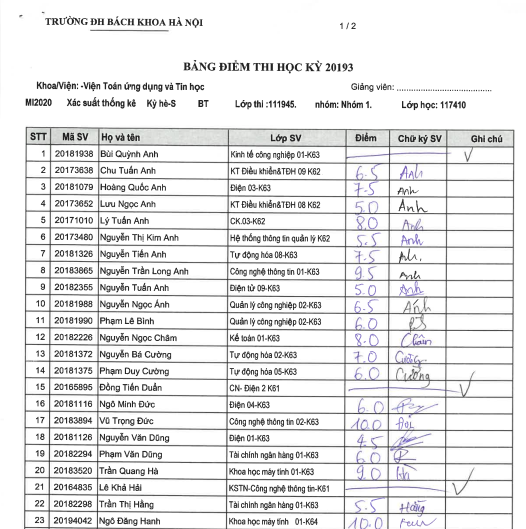 TRƯỜNG ĐH BÁCH KHOA HÀ NỘI
1 / 2
BẢNG ĐIỂM THI HỌC KỲ 20193
Khoa/Viện: -Viện Toán ứng dụng và Tin học Giảng viên: ....................................
MI2020 Xác suất thống kê Kỳ hè-S BT Lớp thi :111945. nhóm: Nhóm 1. Lớp học: 117410
STT Mã SV Họ và tên Lớp SV Điểm Chữ ký SV Ghi chú
1 20181938 Bùi Quỳnh Anh Kinh tế công nghiệp 01-K63
2 20173638 Chu Tuấn Anh KT Điều khiển&TĐH 09 K62 6.5 Anh
3 20181079 Hoàng Quốc Anh Điện 03-K63 7.5 Anh
4 20173652 Lưu Ngọc Anh KT Điều khiển&TĐH 08 K62 5.0 Anh
5 20171010 Lý Tuấn Anh CK.03-K62 8.0 Anh
6 20173480 Nguyễn Thị Kim Anh Hệ thống thông tin quản lý K62 5.5 Anh
7 20181326 Nguyễn Tiến Anh Tự động hóa 08-K63 7.5 Anh.
8 20183865 Nguyễn Trần Long Anh Công nghệ thông tin 01-K63 9.5 Anh
9 20182355 Nguyễn Tuấn Anh Điện tử 09-K63 5.0 Anh
10 20181988 Nguyễn Ngọc Ánh Quản lý công nghiệp 02-K63 6.5 Ánh
11 20181990 Phạm Lê Bình Quản lý công nghiệp 02-K63 6.0
12 20182226 Nguyễn Ngọc Châm Kế toán 01-K63 8.0 Châm
13 20181372 Nguyễn Bá Cường Tự động hóa 02-K63 7.0 Cường
14 20181375 Phạm Duy Cường Tự động hóa 05-K63 6.0 Cường
15 20165895 Đồng Tiến Duẩn CN- Điện 2 K61
16 20181116 Ngô Minh Đức Điện 04-K63 6.0
17 20183894 Vũ Trọng Đức Công nghệ thông tin 02-K63 10.0
18 20181126 Nguyễn Văn Dũng Điện 01-K63 4.5
19 20182294 Phạm Văn Dũng Tài chính ngân hàng 01-K63 6.0
20 20183520 Trần Quang Hà Khoa học máy tính 01-K63 9.0 Hà
21 20164835 Lê Khả Hải KSTN-Công nghệ thông tin-K61
22 20182298 Trần Thị Hằng Tài chính ngân hàng 01-K63 5.5 Hằng
23 20194042 Ngô Đăng Hanh Khoa học máy tính 01-K64 10.0